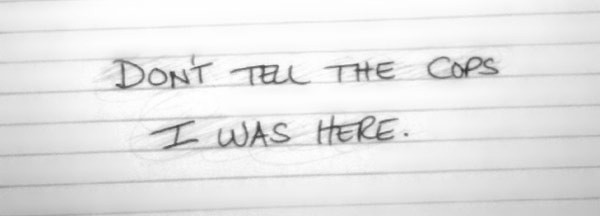 DON'T TELL THE COPS
I WAS HERE.